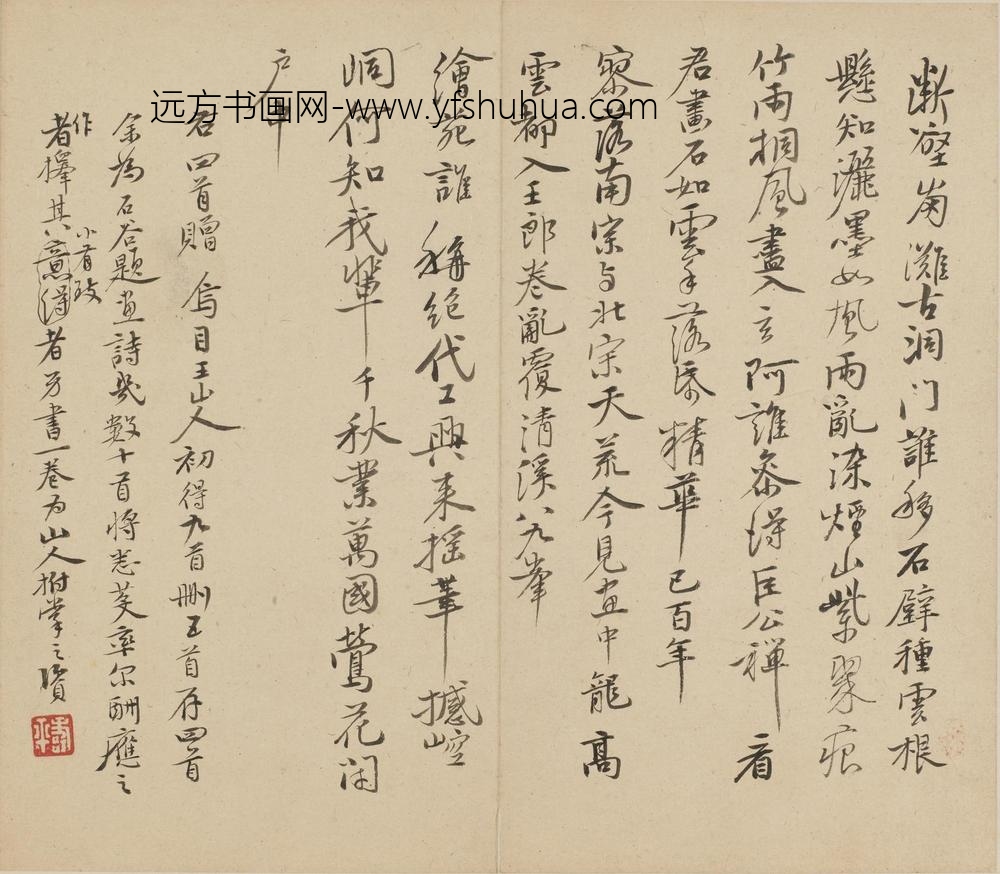 断壑崩灘古洞门誰移石壁種雲根
懸知灑墨如風雨亂染煙山紫翠痕
竹雨桐風盡入玄阿誰參得巨公禪看
君畫石如雲手落紙精華已百年
寥落南宗与北宗天荒今見画中龍高
雲都入王郎卷亂覆清溪八九峯
繪苑誰稱絕代工興来摇筆撼崆
峒何知我輩千秋業萬國鶯花閉
户中
右四首贈烏目王山人初得九首刪五首存四首
余為石谷題画詩幾数十首將悉芟率尔酬應之
作
者擇其意得者另書一卷为山人拊掌之資
小有致
壽平
远方书画网-www.yfshuhua.com